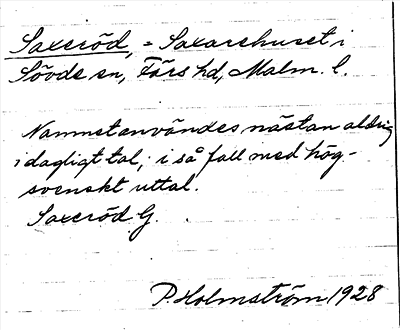 Saxeröd, = Saxarehuset i
Sövde sn, Färs hd, Malm. l.
Namnet användes nästan aldrig
i dagligt tal, i så fall med hög-
svenskt uttal.
Saxeröd G.
P. Holmström 1928